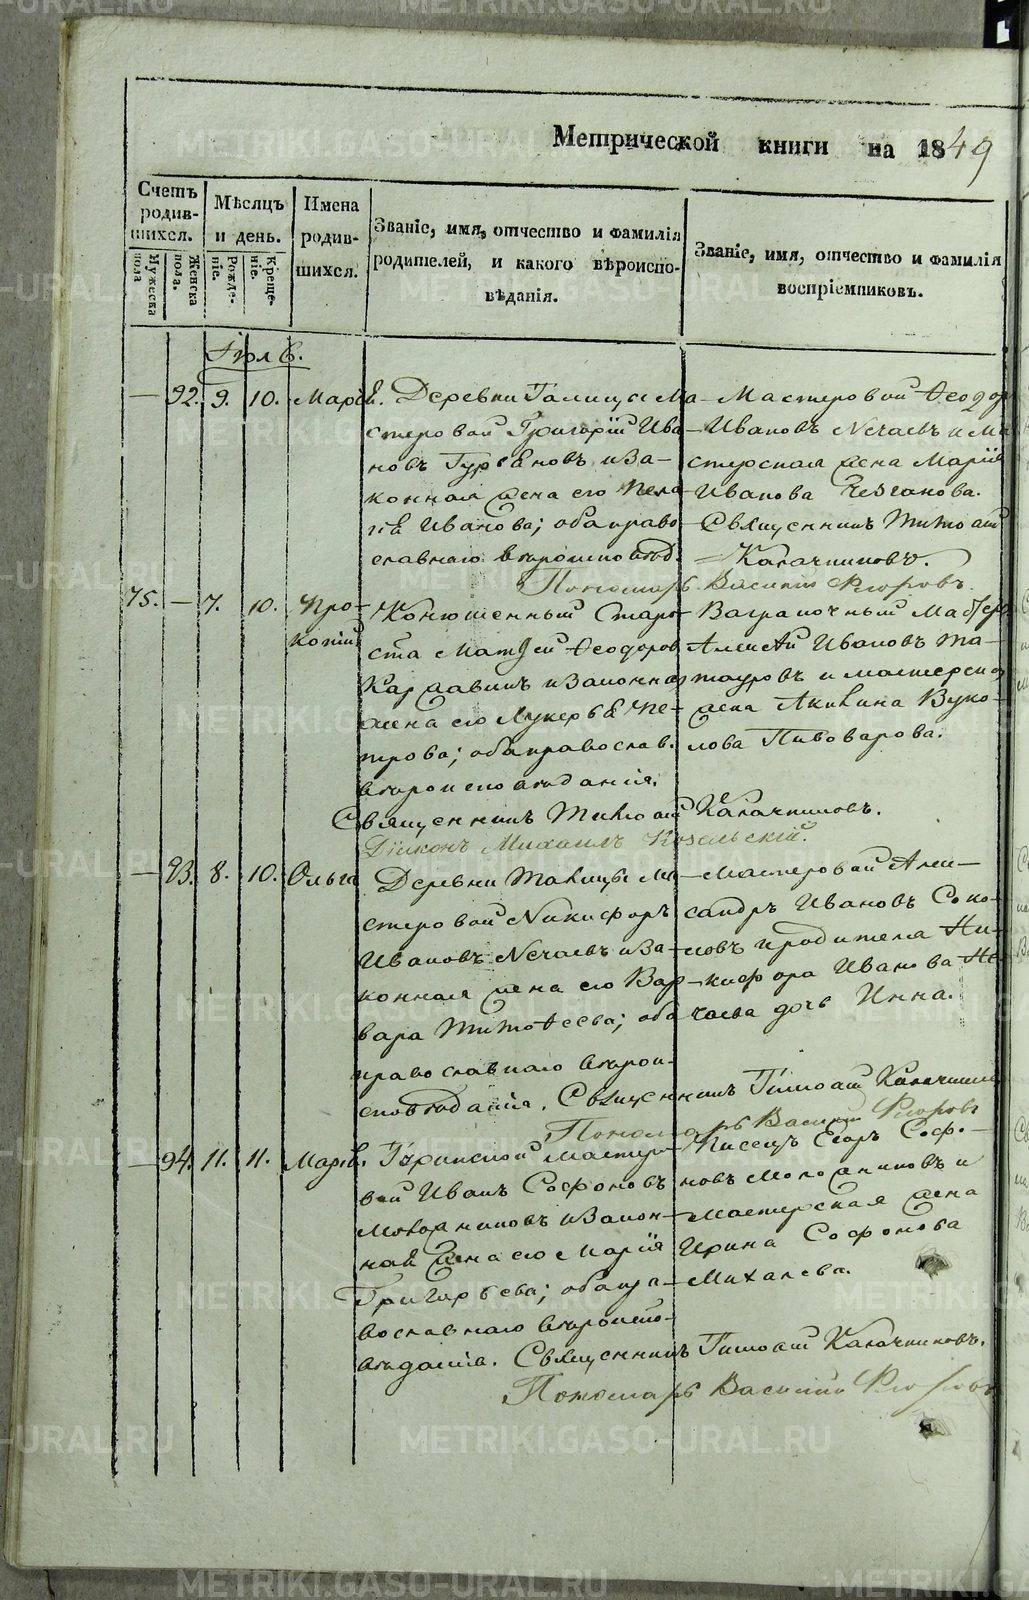 Метрической книги на 1849
Счетъ родив-шихся.
Мужеска пола
Женска пола.
Мѣсяцъ и день.
Рожде-ніе.
Креще-ніе.
Имена родив-шихся.
Званіе, имя, отчество и фамилія
родителей, и какого вѣроиспо-
вѣданія.
Званіе, имя, отчество и фамилія
воспріемниковъ.
— 92. 9. 10. Марія.
Деревни Талицы Ма-
стеровой Григорій Ива-
новъ и за-
конная жена его Пела-
гія Иванова; оба право-
славнаго вѣроисповѣд.
Мастеровой Ѳеодоръ
Ивановъ Нечаевъ и ма-
стерская жена Марія
Иванова
Священникъ Тимоѳей
Калачниковъ.
Пономарь Василій Флоровъ.
75. — 7. 10. Про-
копій
Конюшенный Старо-
ста Матѳей Ѳеодоровъ
и законная
жена его Лукерья Пе-
трова; оба православ.
вѣроисповѣданія.
Ваграночный Мастеръ
Алексѣй Ивановъ Та-
тауровъ и мастерская
жена Акилина Вуко-
лова Пивоварова.
Священникъ Тимоѳей Калачниковъ.
Діаконъ Михаилъ Козельскій.
— 93. 8. 10. Ольга
Деревни Талицы Ма-
стеровой Никифоръ
Ивановъ Нечаевъ и за-
конная жена его Вар-
вара Тимоѳеева; оба
православнаго вѣрои-
сповѣданія.
Мастеровой Алек-
сандръ Ивановъ Соко-
ловъ и родителя Ни-
кифора Иванова Не-
чаева дочь Инна.
Священникъ Тимоѳей Калачниковъ
Пономарь Василій Флоровъ
— 94. 11. 11. Марія.
Мастеро-
вой Иванъ Софоновъ
и закон-
ная жена его Марія
Григорьева; оба пра-
вославнаго вѣроиспо-
вѣданія.
Писецъ Егоръ Софо-
новъ и
Мастерская жена
Ирина Софонова
Михалева.
Священникъ Тимоѳей Калачниковъ.
Пономарь Василій Флоровъ
METRIKI.GASO-URAL.RU